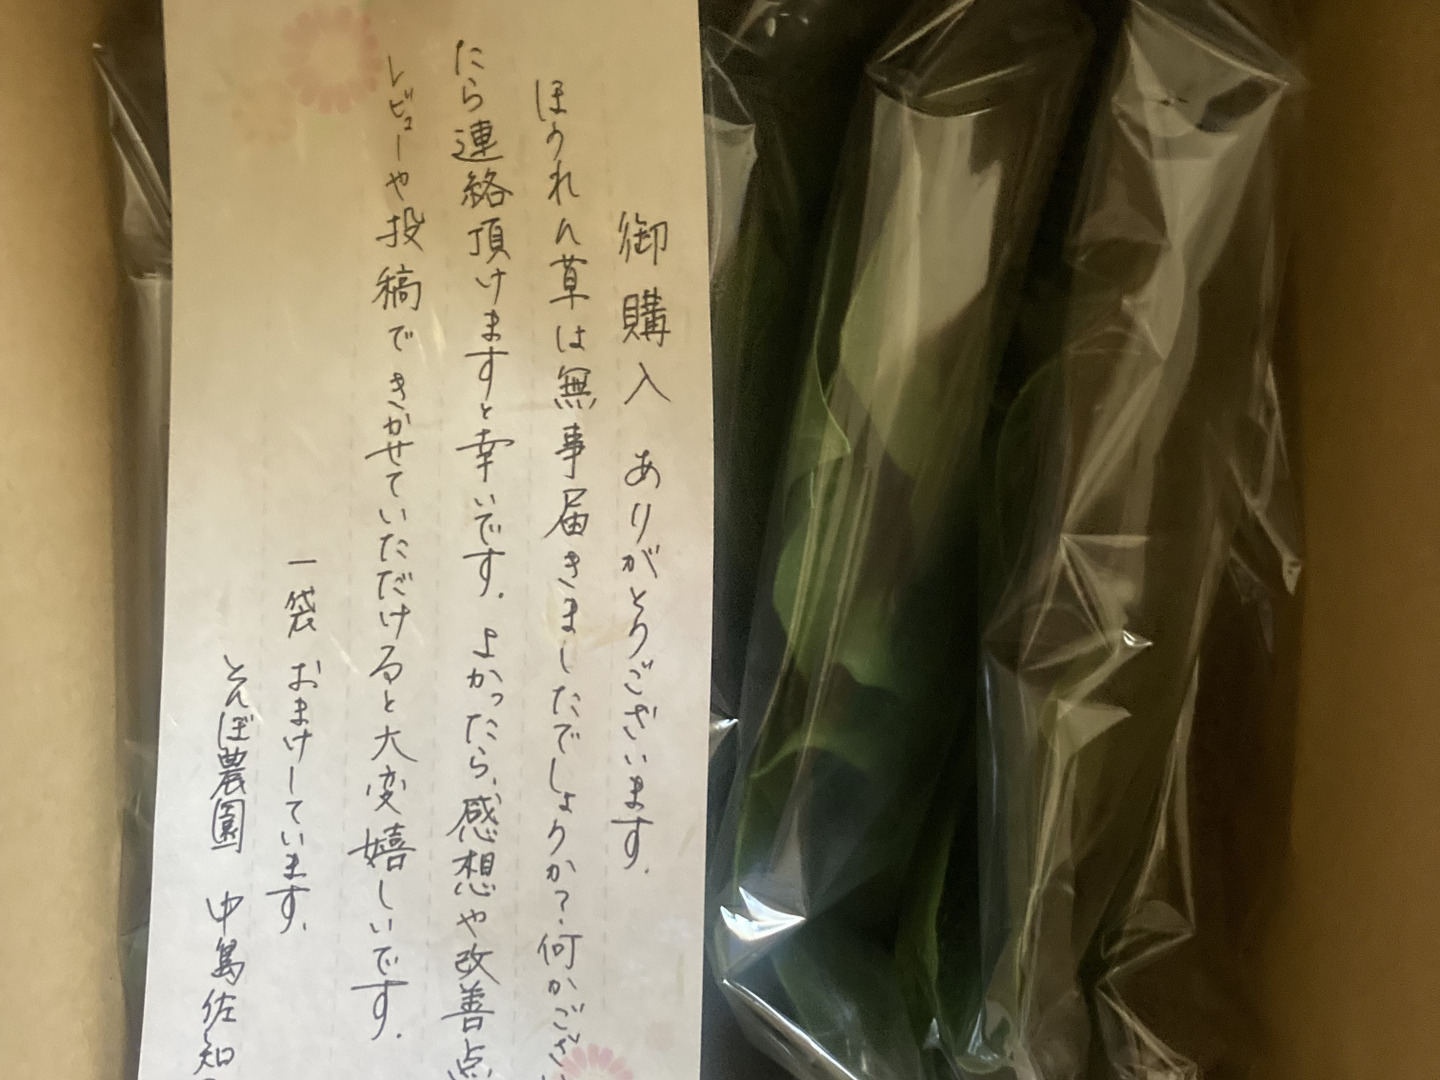 御購入 ありがとうございます.
ほうれん草は無事届きましたでしょうか?.何かござい
たら連絡頂けますと幸いです. よかったら、感想や改善点
レビューや投稿できかせていただけると大変嬉しいです.
一袋 おまけしています.
とんぼ農園 中島佐知